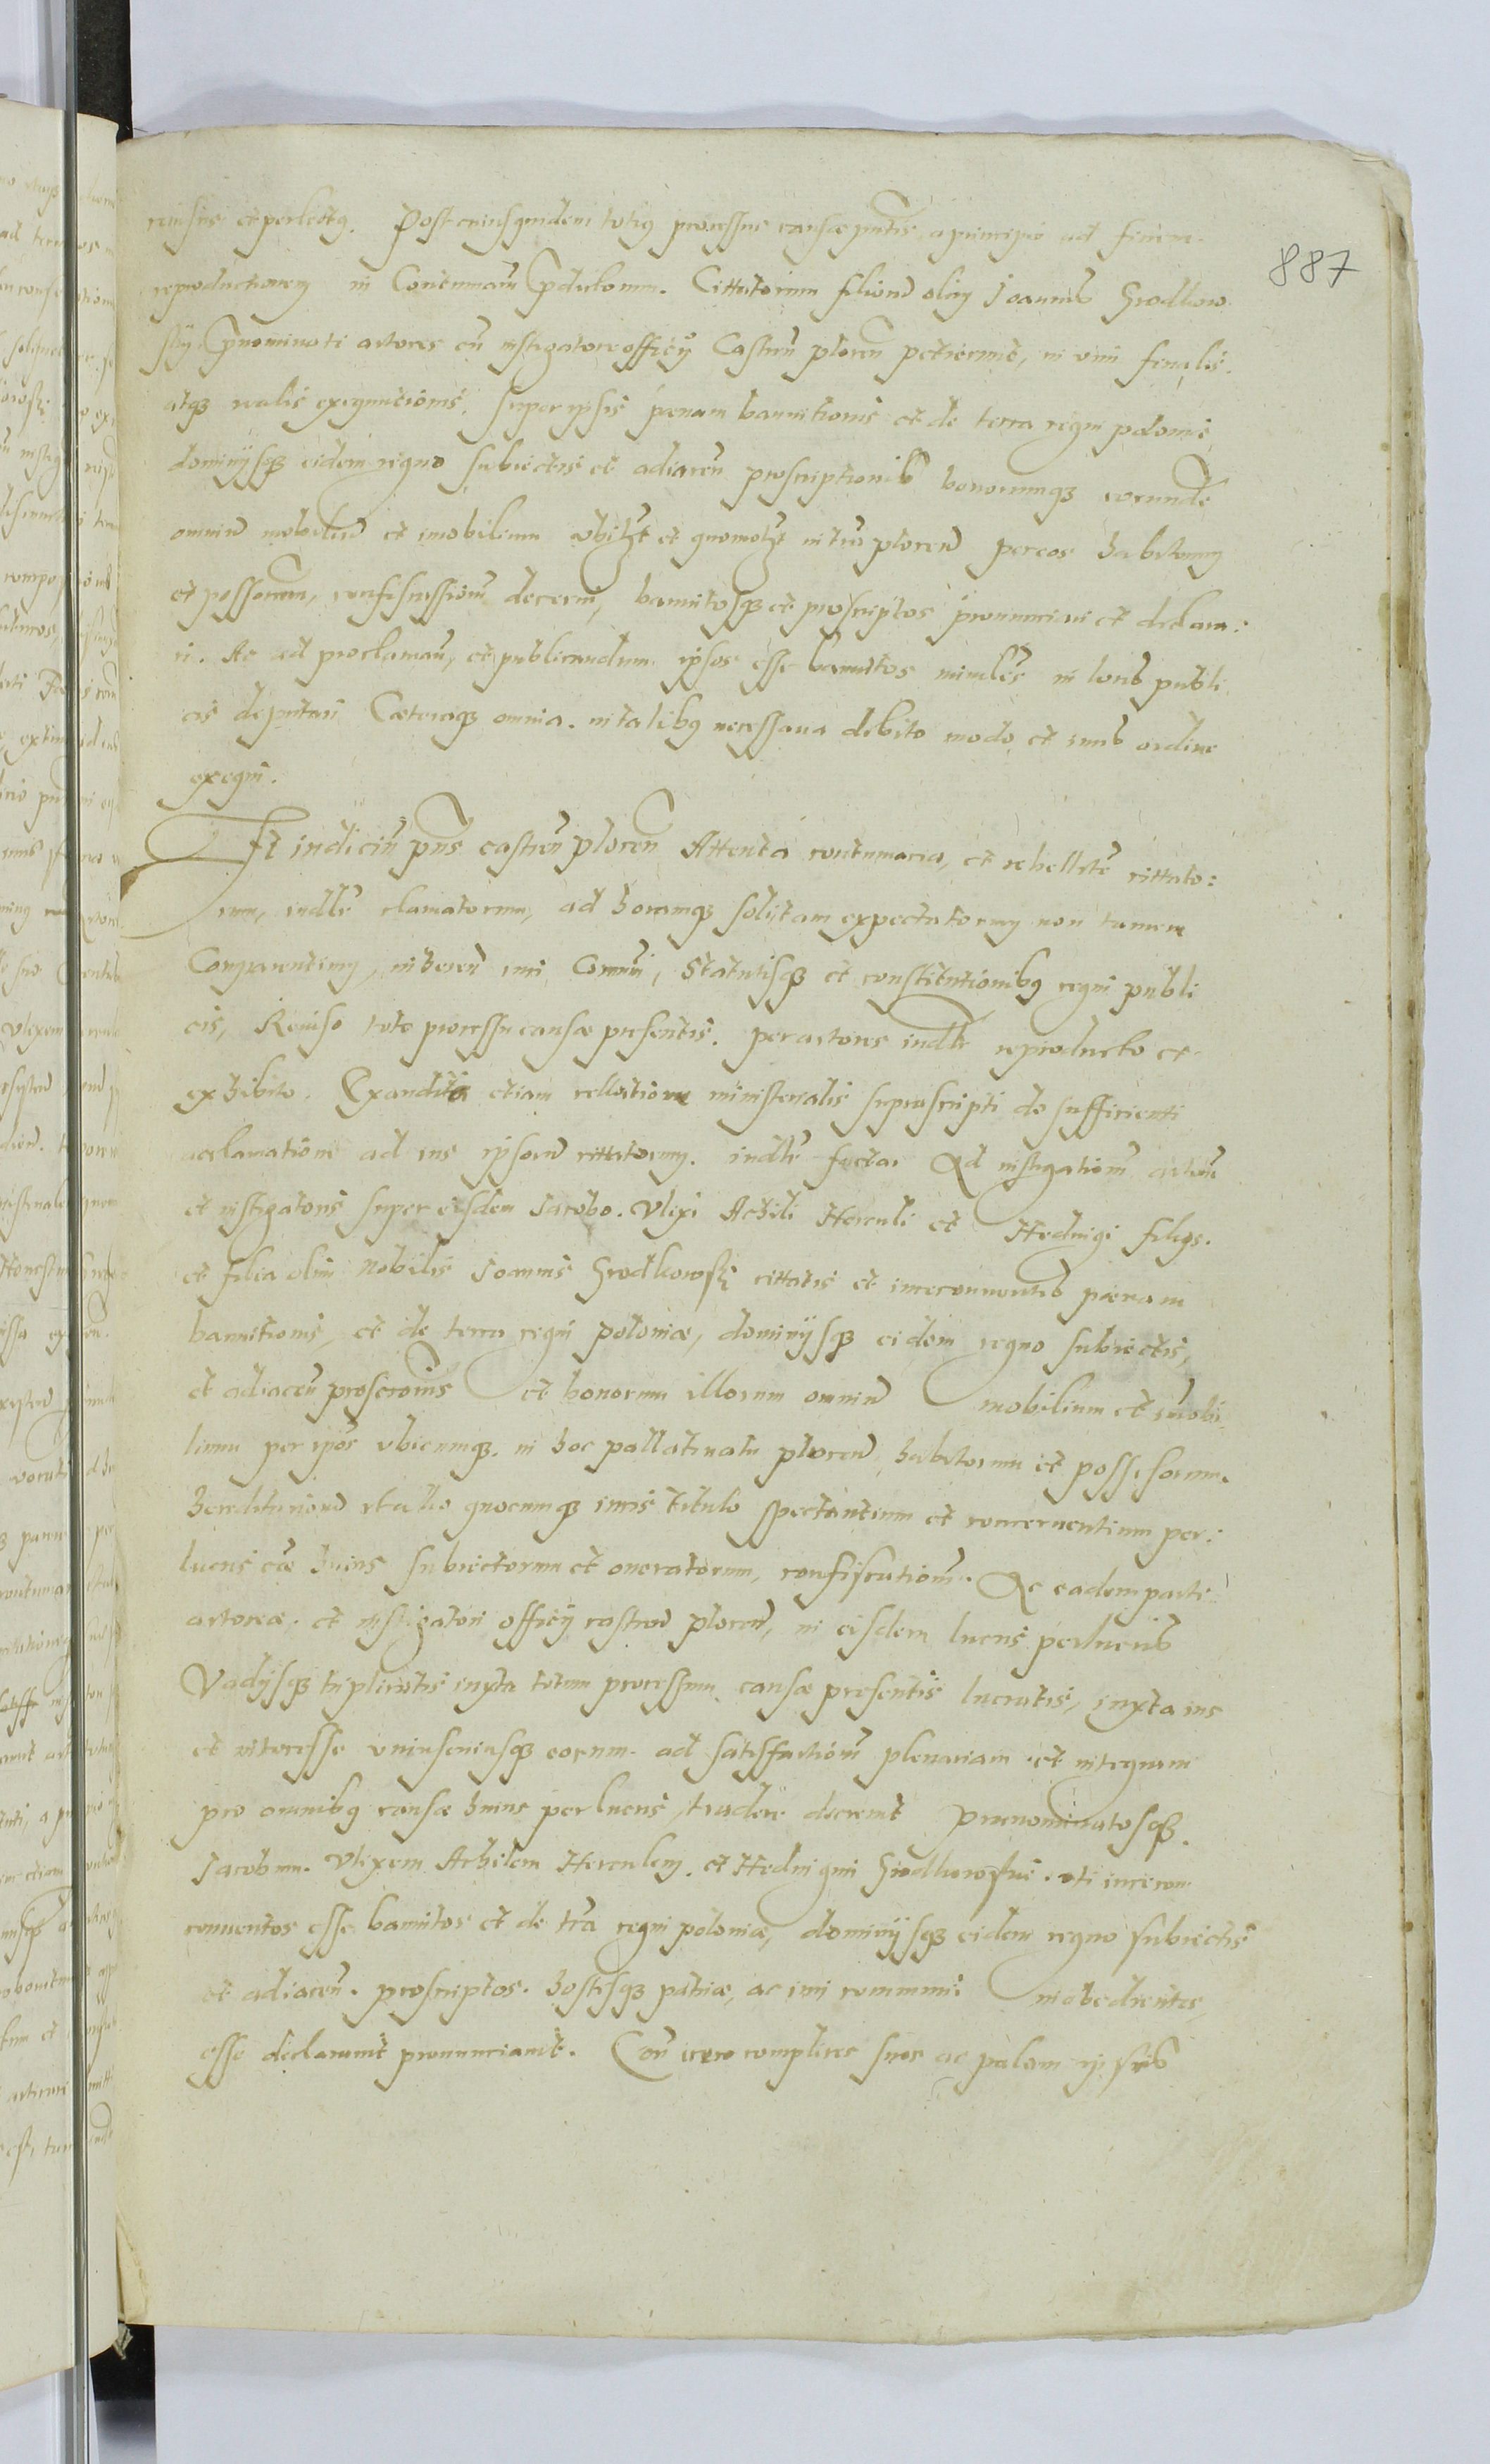 887
reuisus et perlectq. Post cuiusquidem totiq processus causæ pntis a principio ad finem
reproductionem in Contumam pdictorum. Cittatorum filiorū olim Joannis Srodkow
sky pnominati actores cū instigatore officÿ Castren plocen petierunt, in vim finalis
atqȝ realis exequutionis, super ipsis pœnam bannitionis et de terra regni poloniæ
dominÿsqȝ eidem regno subiectis et adiacen proscriptionis bonorumqȝ eorunde
omniū mobiliū et imobilium vbilȝt et quomolȝt in tra plocen per eos habitorum
et possorum, confiscassionē decerni, bannitosqȝ et proscriptos pronunciari et declara:
ri. Ac ad proclamanū, et publicandum ipsos esse bannitos minlēs in locis publi
cis deputari Cæteraqȝ omnia in talibq necessaria debito modo et iuris ordine
exequi.
Et iudiciū pns castren plocen Attenta contumacia, et rebellite cittato:
rum, iudlr clamatorum, ad horamqȝ solitam expectatorum non tamen
Comparentium, inheren iuri Comuni, Statutisqȝ et constitutionibq regni publi
cis, Reuiso toto processu causæ presentis. per actores iudlr reproducto et
exhibito. Exaudita etiam rellatione ministerialis suprascripti de sufficienti
acclamatione ad ius ipsorū cittatorum. iudlr facta. Ad instigationē actorū
et instigatoris super eisdem Jacobo. Vlixi Achili Herculi et Heduigi filÿs.
et filia olim Nobilis Joannis Srodkowski cittatis et iureconuentis pœnam
bannitionis, et de terra regni poloniæ, dominÿsqȝ eidem regno subiectis,
et adiacen proscrōnis et bonorum illorum omniū mobilium et imobi
lium per ipos vbicumqȝ in hoc pallatinatu plocen habitorum et possessorum.
hereditariorū et alio quocumqȝ iuris titulo spectantium et concernentium per:
lucris cæ huius subiectorum et oneratorum, confiscationē. Ac eadem parte
actoreæ et instigatori officÿ castren plocen, in eisdem lucris perlucris
Vadÿsqȝ triplicatis iuxta totum processum causæ presentis lucratis, iuxta ius
et interesse vniuscuiusqȝ eorum ad satisfactionē plenariam et integram
pro omnibq causæ huius perlucris tradere decreuit prænominatosqȝ
Jacobum. Vlixem Achilem Herculem et Heduigim Srodkowskie. vti iurecon
conuentos esse bannitos et de tra regni poloniæ, dominÿsqȝ eidem regno subiectis
et adiacen. proscriptos. hostisqȝ patriæ, ac iuri communi inobedientes
esse declarauit pronunciauit. complices suos ac palam